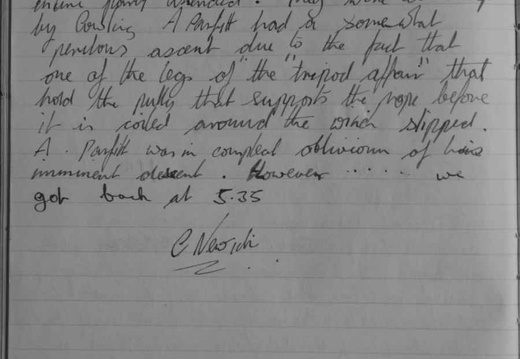 by Cowling A Parfitt had a somewhat
perilous ascent due to the fact that
one of the legs of "the "tripod affair" that
hold the pully that supports the rope before
it is coiled around the winch slipped.
A. Parfitt was in compleat oblivioun of his
imminent descent. However ..... we
got back at 5.35